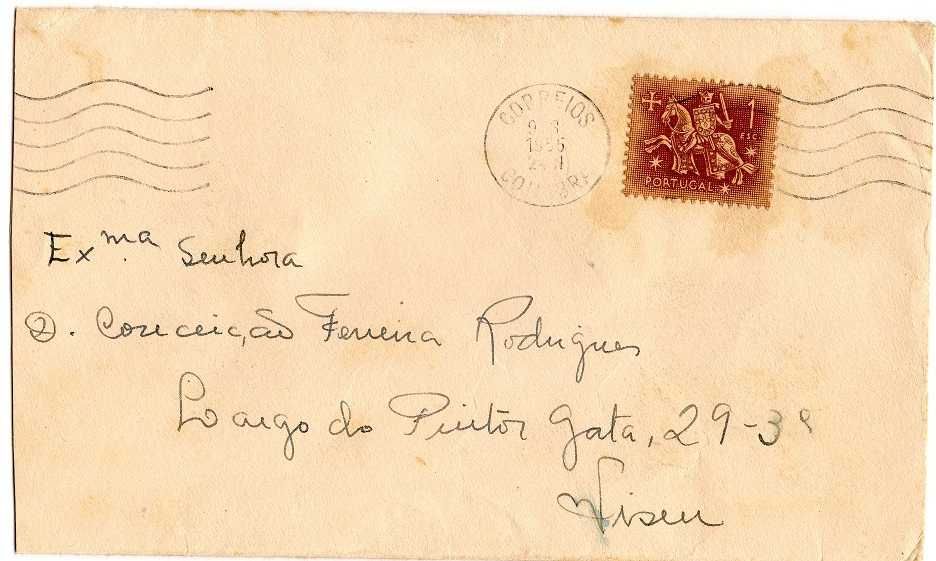 CORREIOS
1955
COIMBRA
1
ESC.
PORTUGAL
Exma Senhora
D. Conceição Ferreira Rodrigues
Largo do Pintor Gata, 29-3º
Viseu